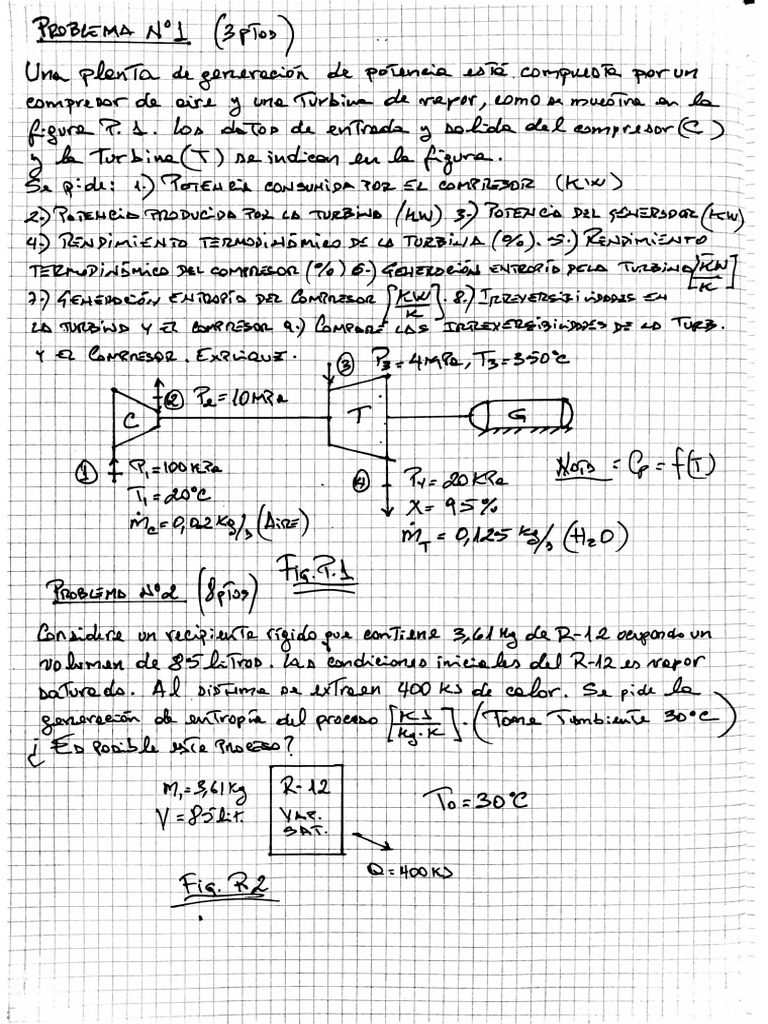 PROBLEMA N°1 (3 ptos)
Una planta de generación de potencia está compuesta por un
compresor de aire y una Turbina de vapor, como se muestra en la
figura P.1. Los datos de entrada y salida del compresor (C)
y la Turbina (T) se indican en la figura.
Se pide: 1.) POTENCIA CONSUMIDA POR EL COMPRESOR (KW)
2.) POTENCIA PRODUCIDA POR LA TURBINA (KW) 3.) POTENCIA DEL GENERADOR (KW)
4.) RENDIMIENTO TERMODINÁMICO DE LA TURBINA (%). 5.) RENDIMIENTO
TERMODINÁMICO DEL COMPRESOR (%) 6.) GENERACIÓN ENTROPÍA DE LA TURBINA [KW/K]
7.) GENERACIÓN ENTROPÍA DEL COMPRESOR [KW/K]. 8.) IRREVERSIBILIDADES EN
LA TURBINA Y EL COMPRESOR 9.) COMPARE LAS IRREVERSIBILIDADES DE LA TURB.
Y EL COMPRESOR. EXPLIQUE.
3 P3 = 4 MPa, T3 = 350°C
2 P2 = 10 MPa
C T G
1 P1 = 100 KPa
T1 = 20°C
ṁC = 0,02 Kg/s (AIRE)
4 P4 = 20 KPa
X = 95%
ṁT = 0,125 Kg/s (H2O)
NOTA = Cp = f(T)
Fig. P.1
PROBLEMA N°2 (8 ptos)
Considere un recipiente rígido que contiene 3,61 Kg de R-12 ocupando un
volumen de 85 litros. Las condiciones iniciales del R-12 es vapor
saturado. Al sistema se extraen 400 KJ de calor. Se pide la
generación de entropía del proceso [KJ/Kg·K]. (Tome Tambiente 30°C)
¿Es posible este proceso?
M1 = 3,61 Kg
V = 85 lit.
R-12
VAP.
SAT.
T0 = 30°C
Q = 400 KJ
Fig. P.2